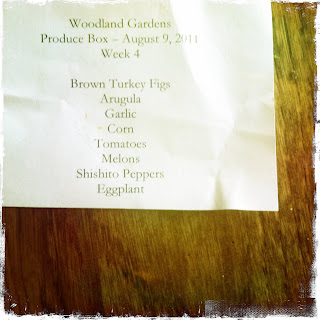 Woodland Gardens
Produce Box – August 9, 2011
Week 4
Brown Turkey Figs
Arugula
Garlic
Corn
Tomatoes
Melons
Shishito Peppers
Eggplant